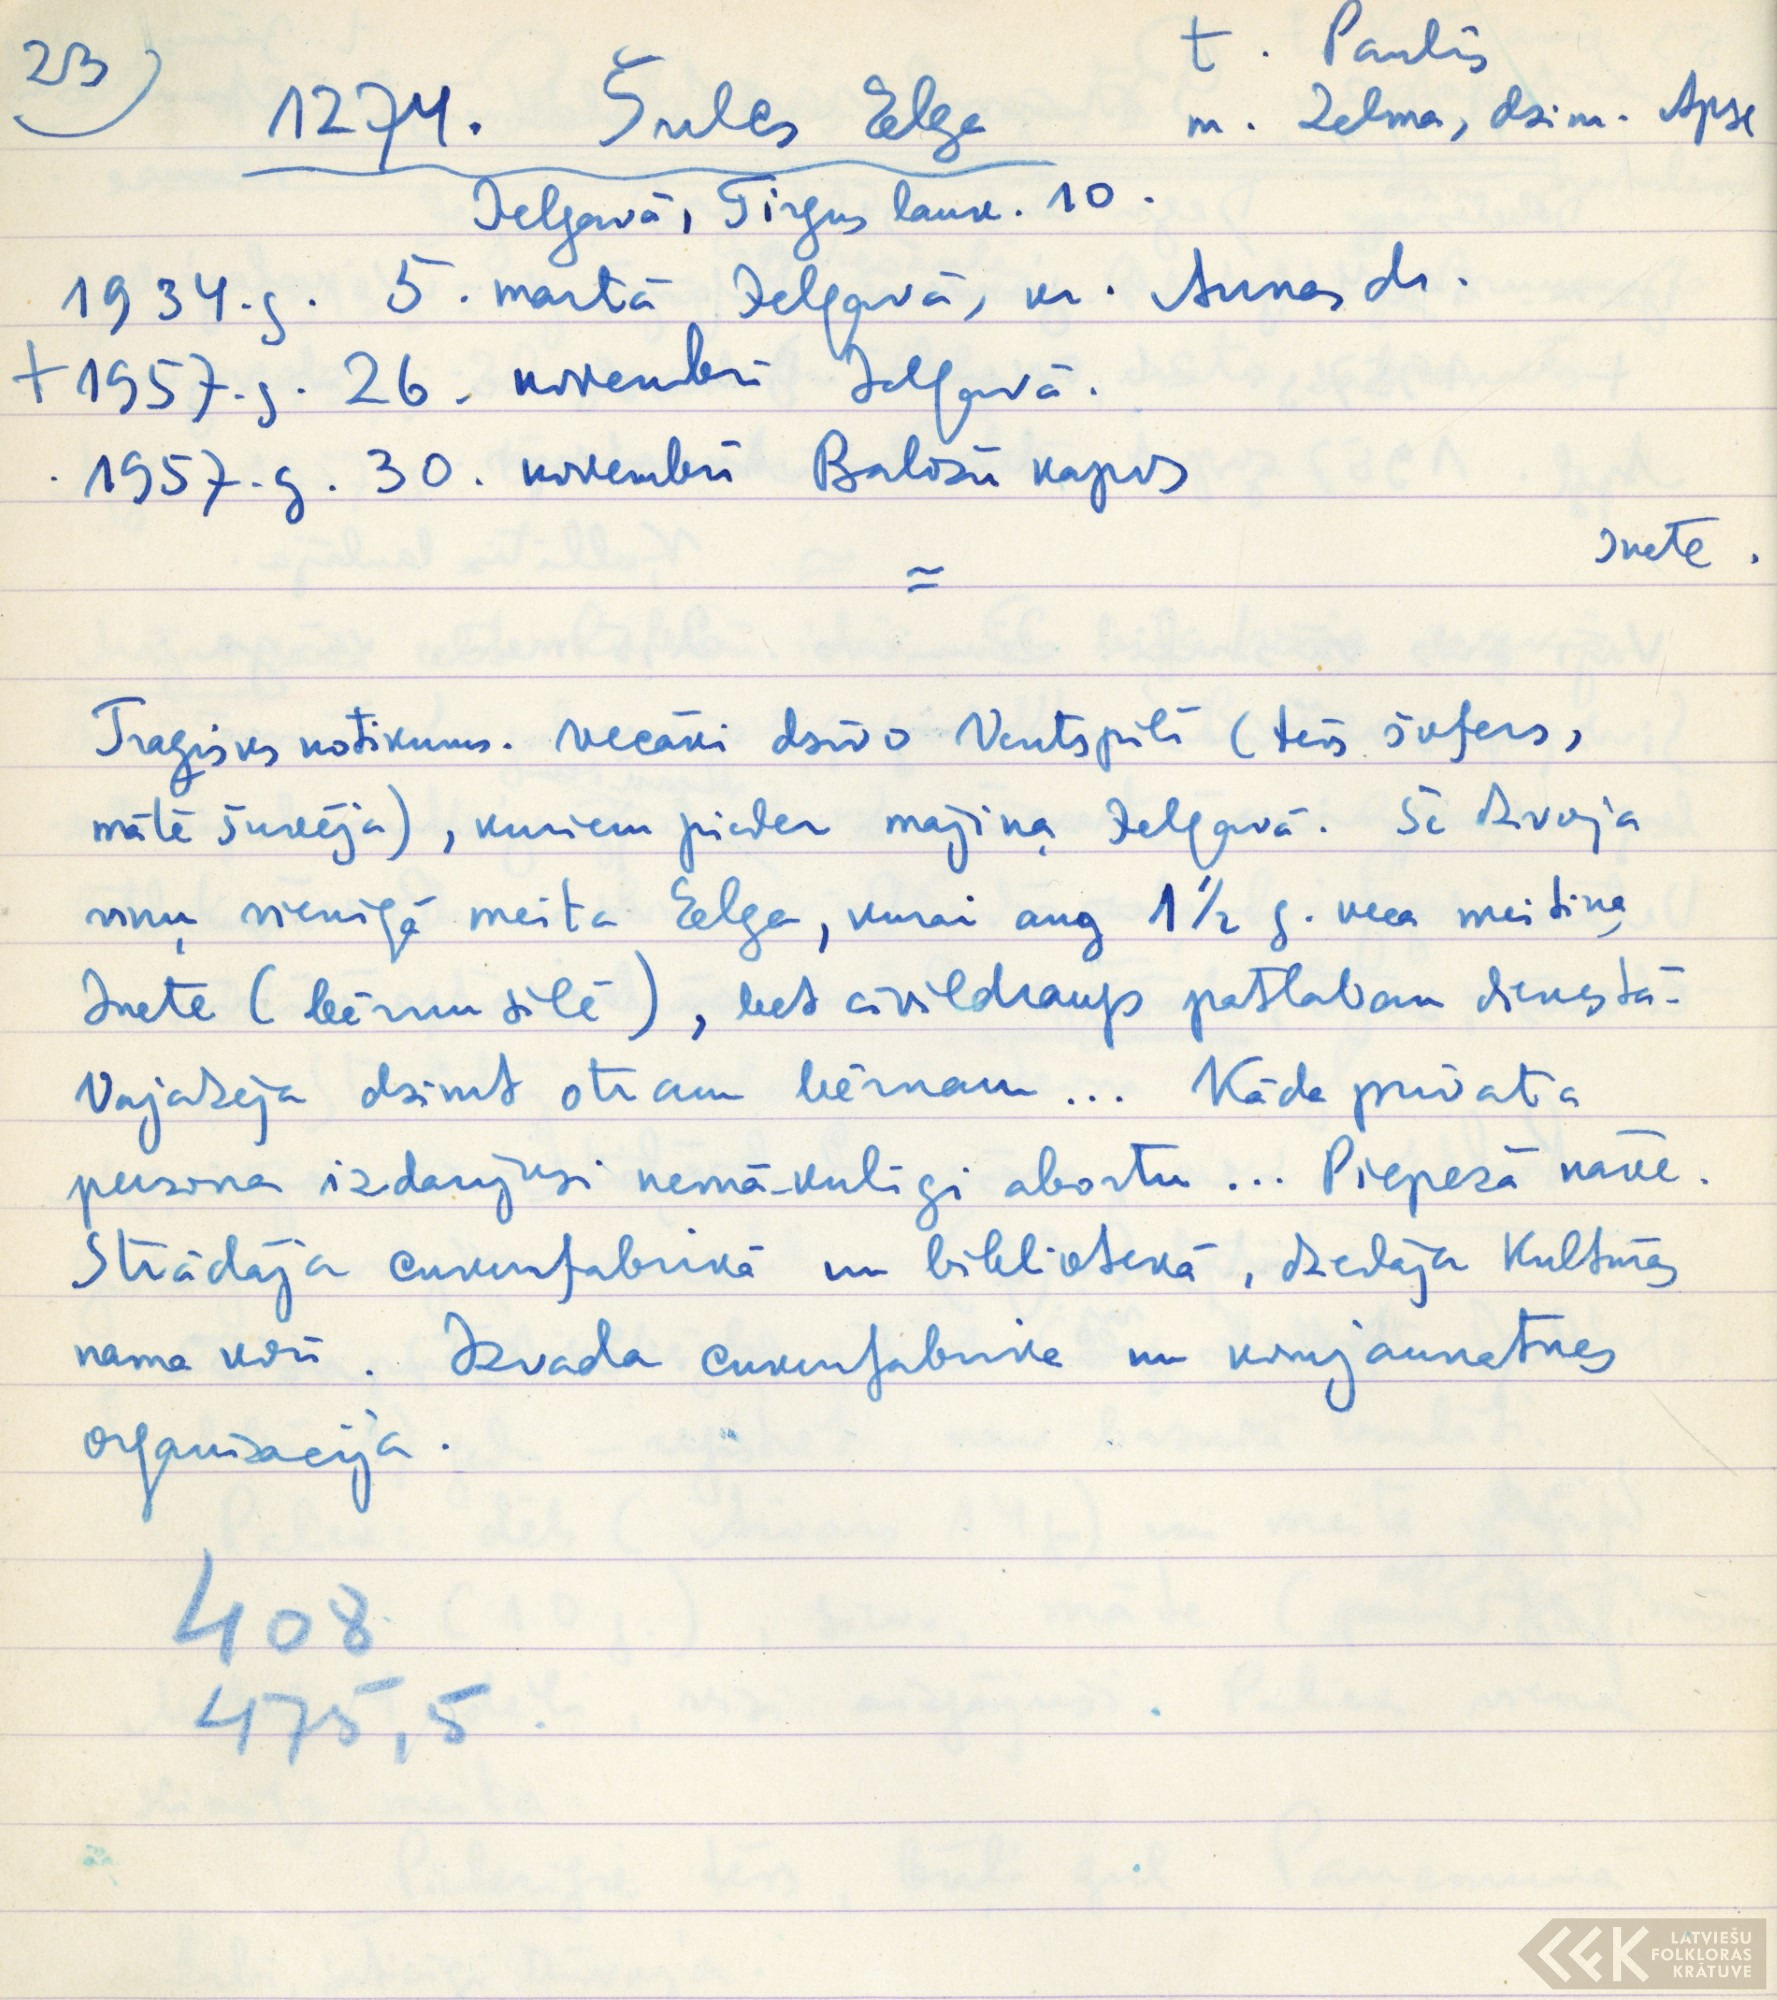 23)
t. Paulis
1274. Šulcs Elga
m. Zelma, dzim. Apse
Jelgavā, Tirgus lauk. 10.
1934.g. 5. martā Jelgavā, kr. Annas dr.
+ 1957.g. 26. novembrī Jelgavā.
1957.g. 30. novembrī Baložu kapos
Inete.
=
Tragisks notikums. Vecāki dzīvo Ventspilī (tēvs šofers,
māte šuvēja), kuriem pieder mājiņa Jelgavā. Še dzīvoja
viņu vienīgā meita Elga, kurai aug 1½ g. veca meitiņa
Inete (bērnu silē), bet civildraugs patlaban dienestā.
Vajadzēja dzimt otram bērnam... Kāda privāta
persona izdarījusi nemākulīgi abortu... Piepešā nāve.
Strādāja cukurfabrikā un bibliotekā, dziedāja Kultūras
nama korī. Izvada cukurfabrika un komjaunatnes
organizācija.
408
475,5
LATVIEŠU
FOLKLORAS
KRĀTUVE